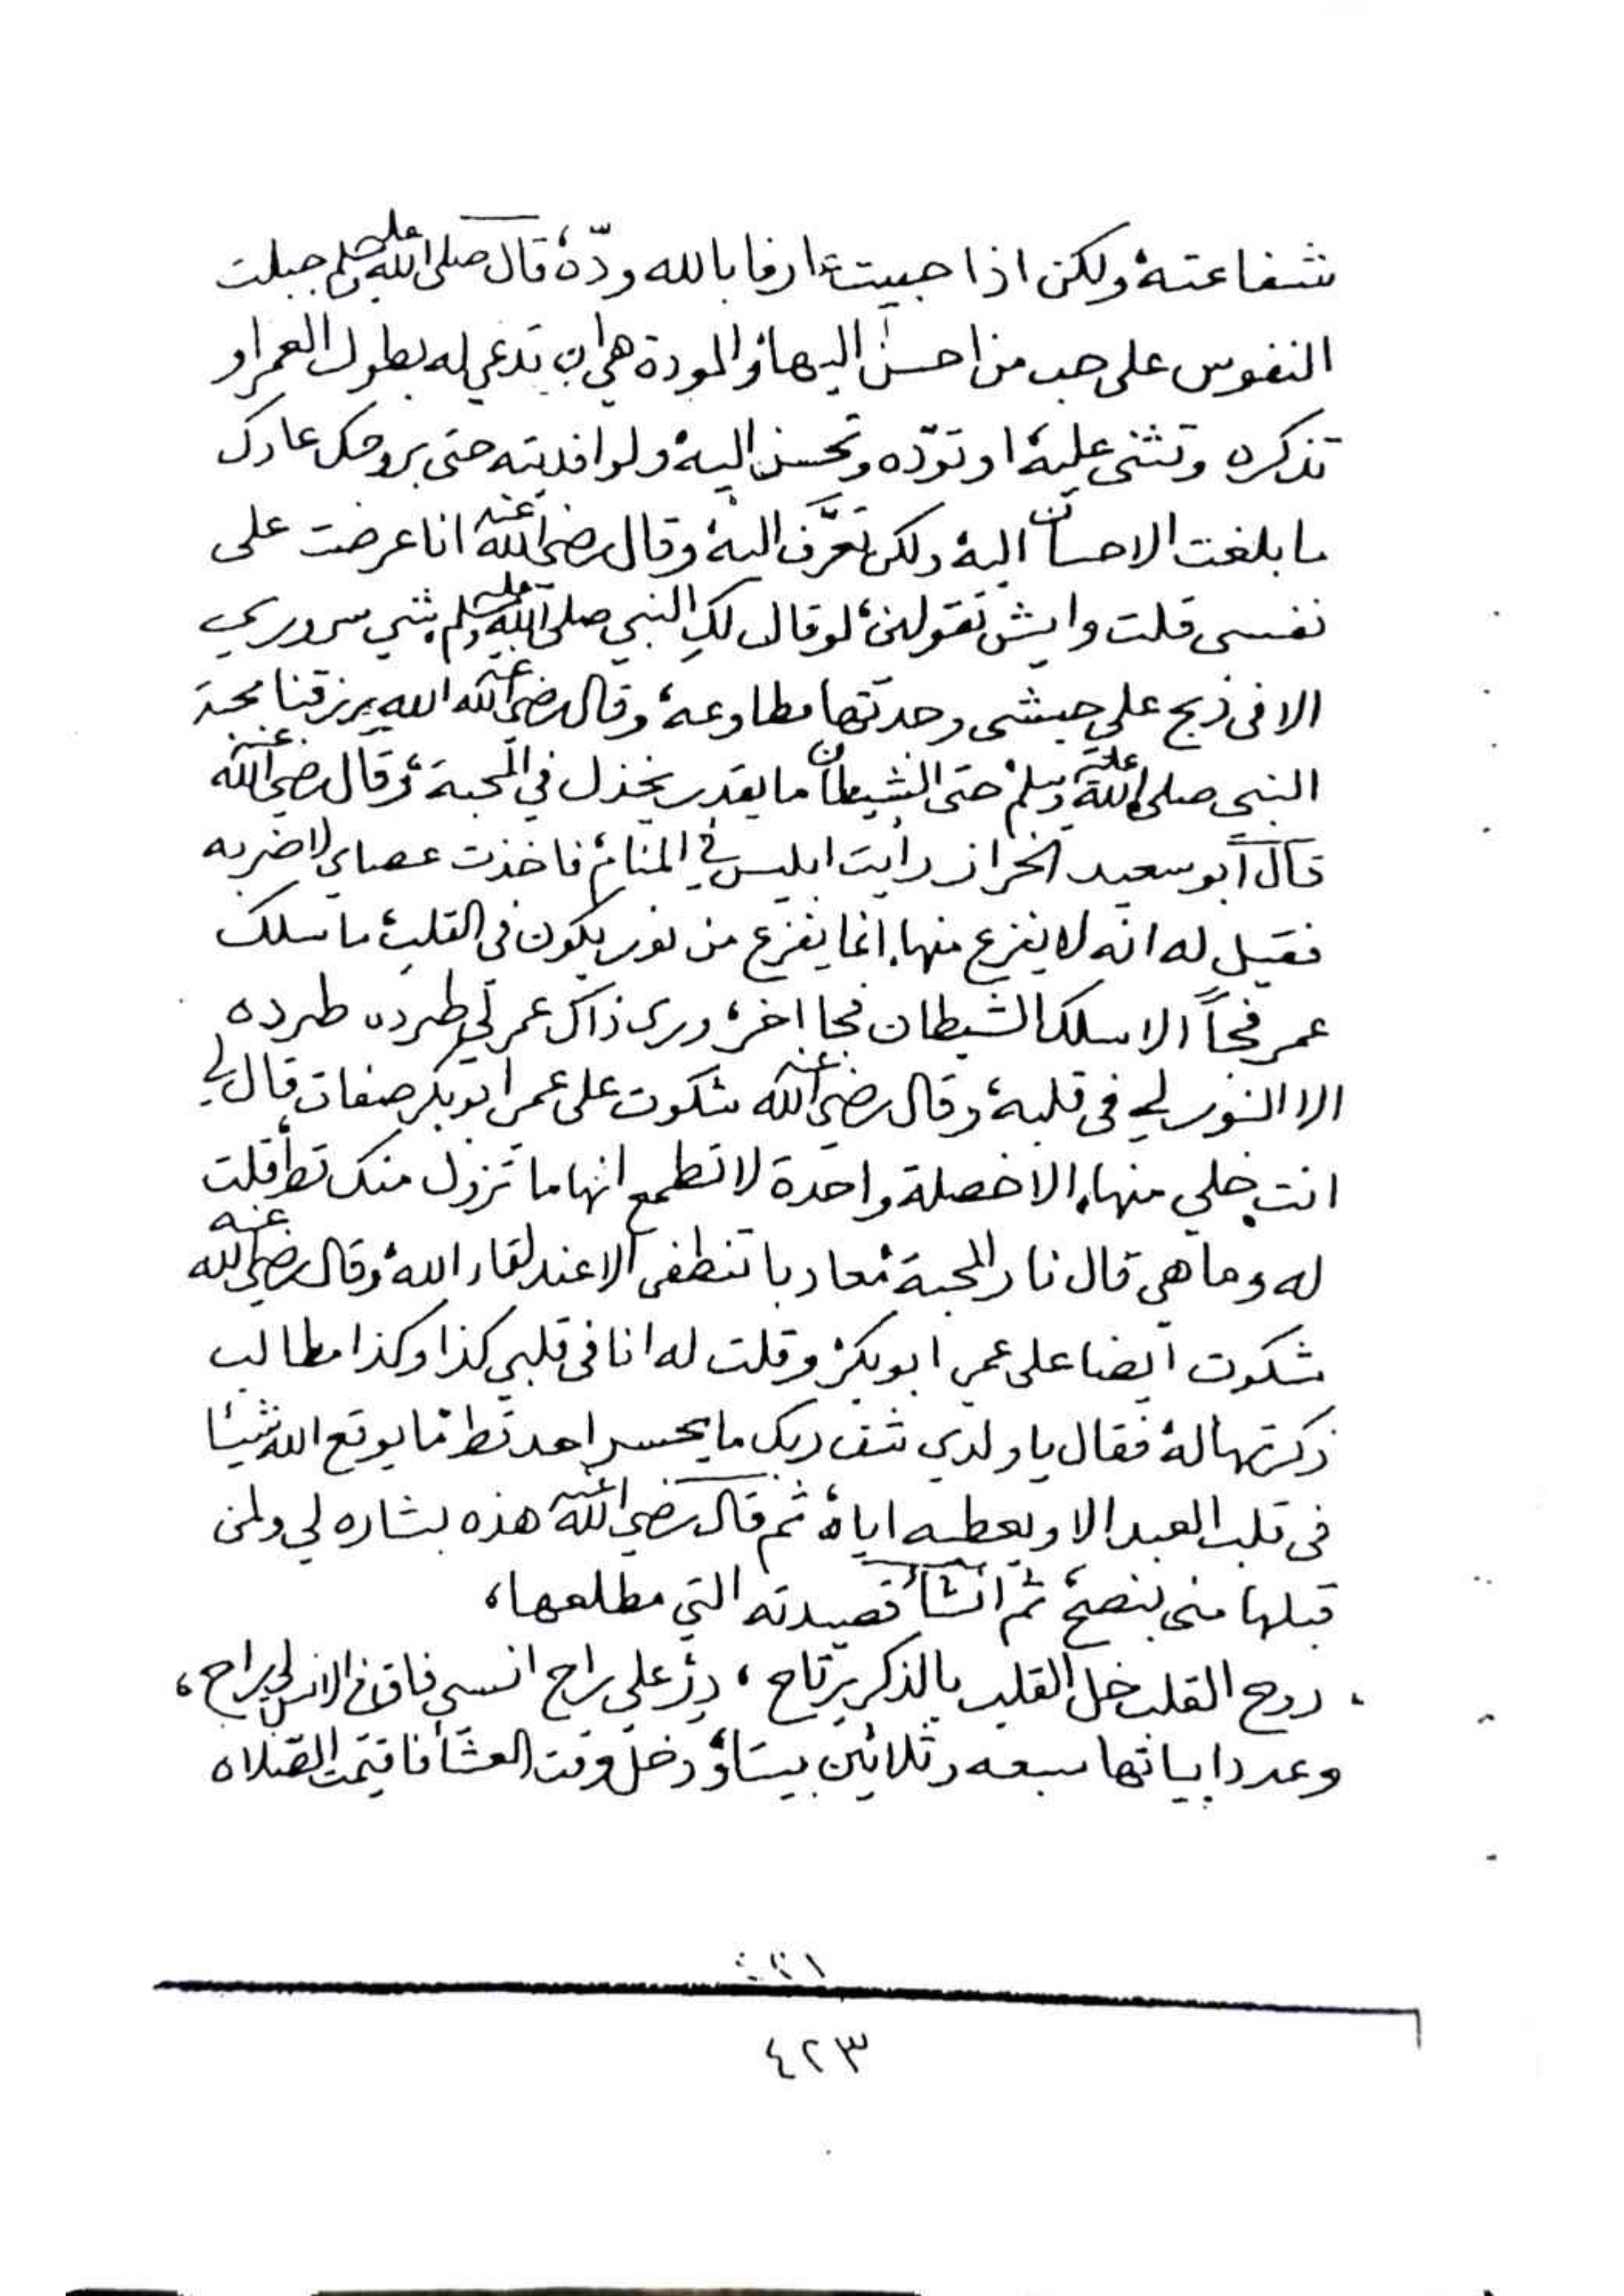 شفاعته، ولكن اذا حبيت عارفا بالله ودّه، قال صلى الله عليه وسلم جبلت
النفوس على حب من احسن اليها، والمودة هي ان تدعي له بطول العمر او
تذكره وتثني عليه، او تودّه وتحسن اليه، ولو افديته حتى بروحك عادك
ما بلغت الاحسان اليه، ولكن تعرَّف اليه، وقال رضي الله عنه انا عرضت على
نفسى قلت وايش تقولين، لو قال لكِ النبي صلى الله عليه وسلم شي سروري
الا فى ذبح علي حبشى وحدتها مطاوعه، وقال رضي الله عنه الله يرزقنا محبة
النبى صلى الله عليه وسلم، حتى الشيطان ما يقدر يخذل في المحبة، وقال رضي الله عنه
قال ابو سعيد الخراز رايت ابليس في المنام، فاخذت عصاي لاضربه
فقيل له انه لا يفزع منها، انما يفزع من نور يكون فى القلب، ما سلك
عمر فجاً الا سلك الشيطان فجا اخر، ورى ذاك عمر لي طرده طرده
الا النور لي فى قلبه، وقال رضي الله عنه شكوت على عمي ابو بكر صفات قال لي
انت خلي منها، الا خصلة واحدة لا تطمع انها ما تزول منك قط، قلت
له وما هي قال نار المحبة، معاد با تنطفى الا عند لقاء الله، وقال رضي الله عنه
شكوت ايضا على عمي ابو بكر، وقلت له انا فى قلبي كذا وكذا مطالب
ذكرتها له، فقال يا ولدي شف ربك ما يحسر احد قط، ما يوقع الله شيئا
فى قلب العبد الا ويعطيه اياه، ثم قال رضي الله عنه هذه بشاره لي ولمن
قبلها منى بنصح، ثم انشأ قصيدته التي مطلعها،
، روح القلب خل القلب بالذكر يرتاح ، دِرْ علي راح انسي فاق في الانس لي راح ،
وعدد ابياتها سبعه وثلاثين بيتا، ودخل وقت العشا، فاقيمت الصلاه
٤٢٣